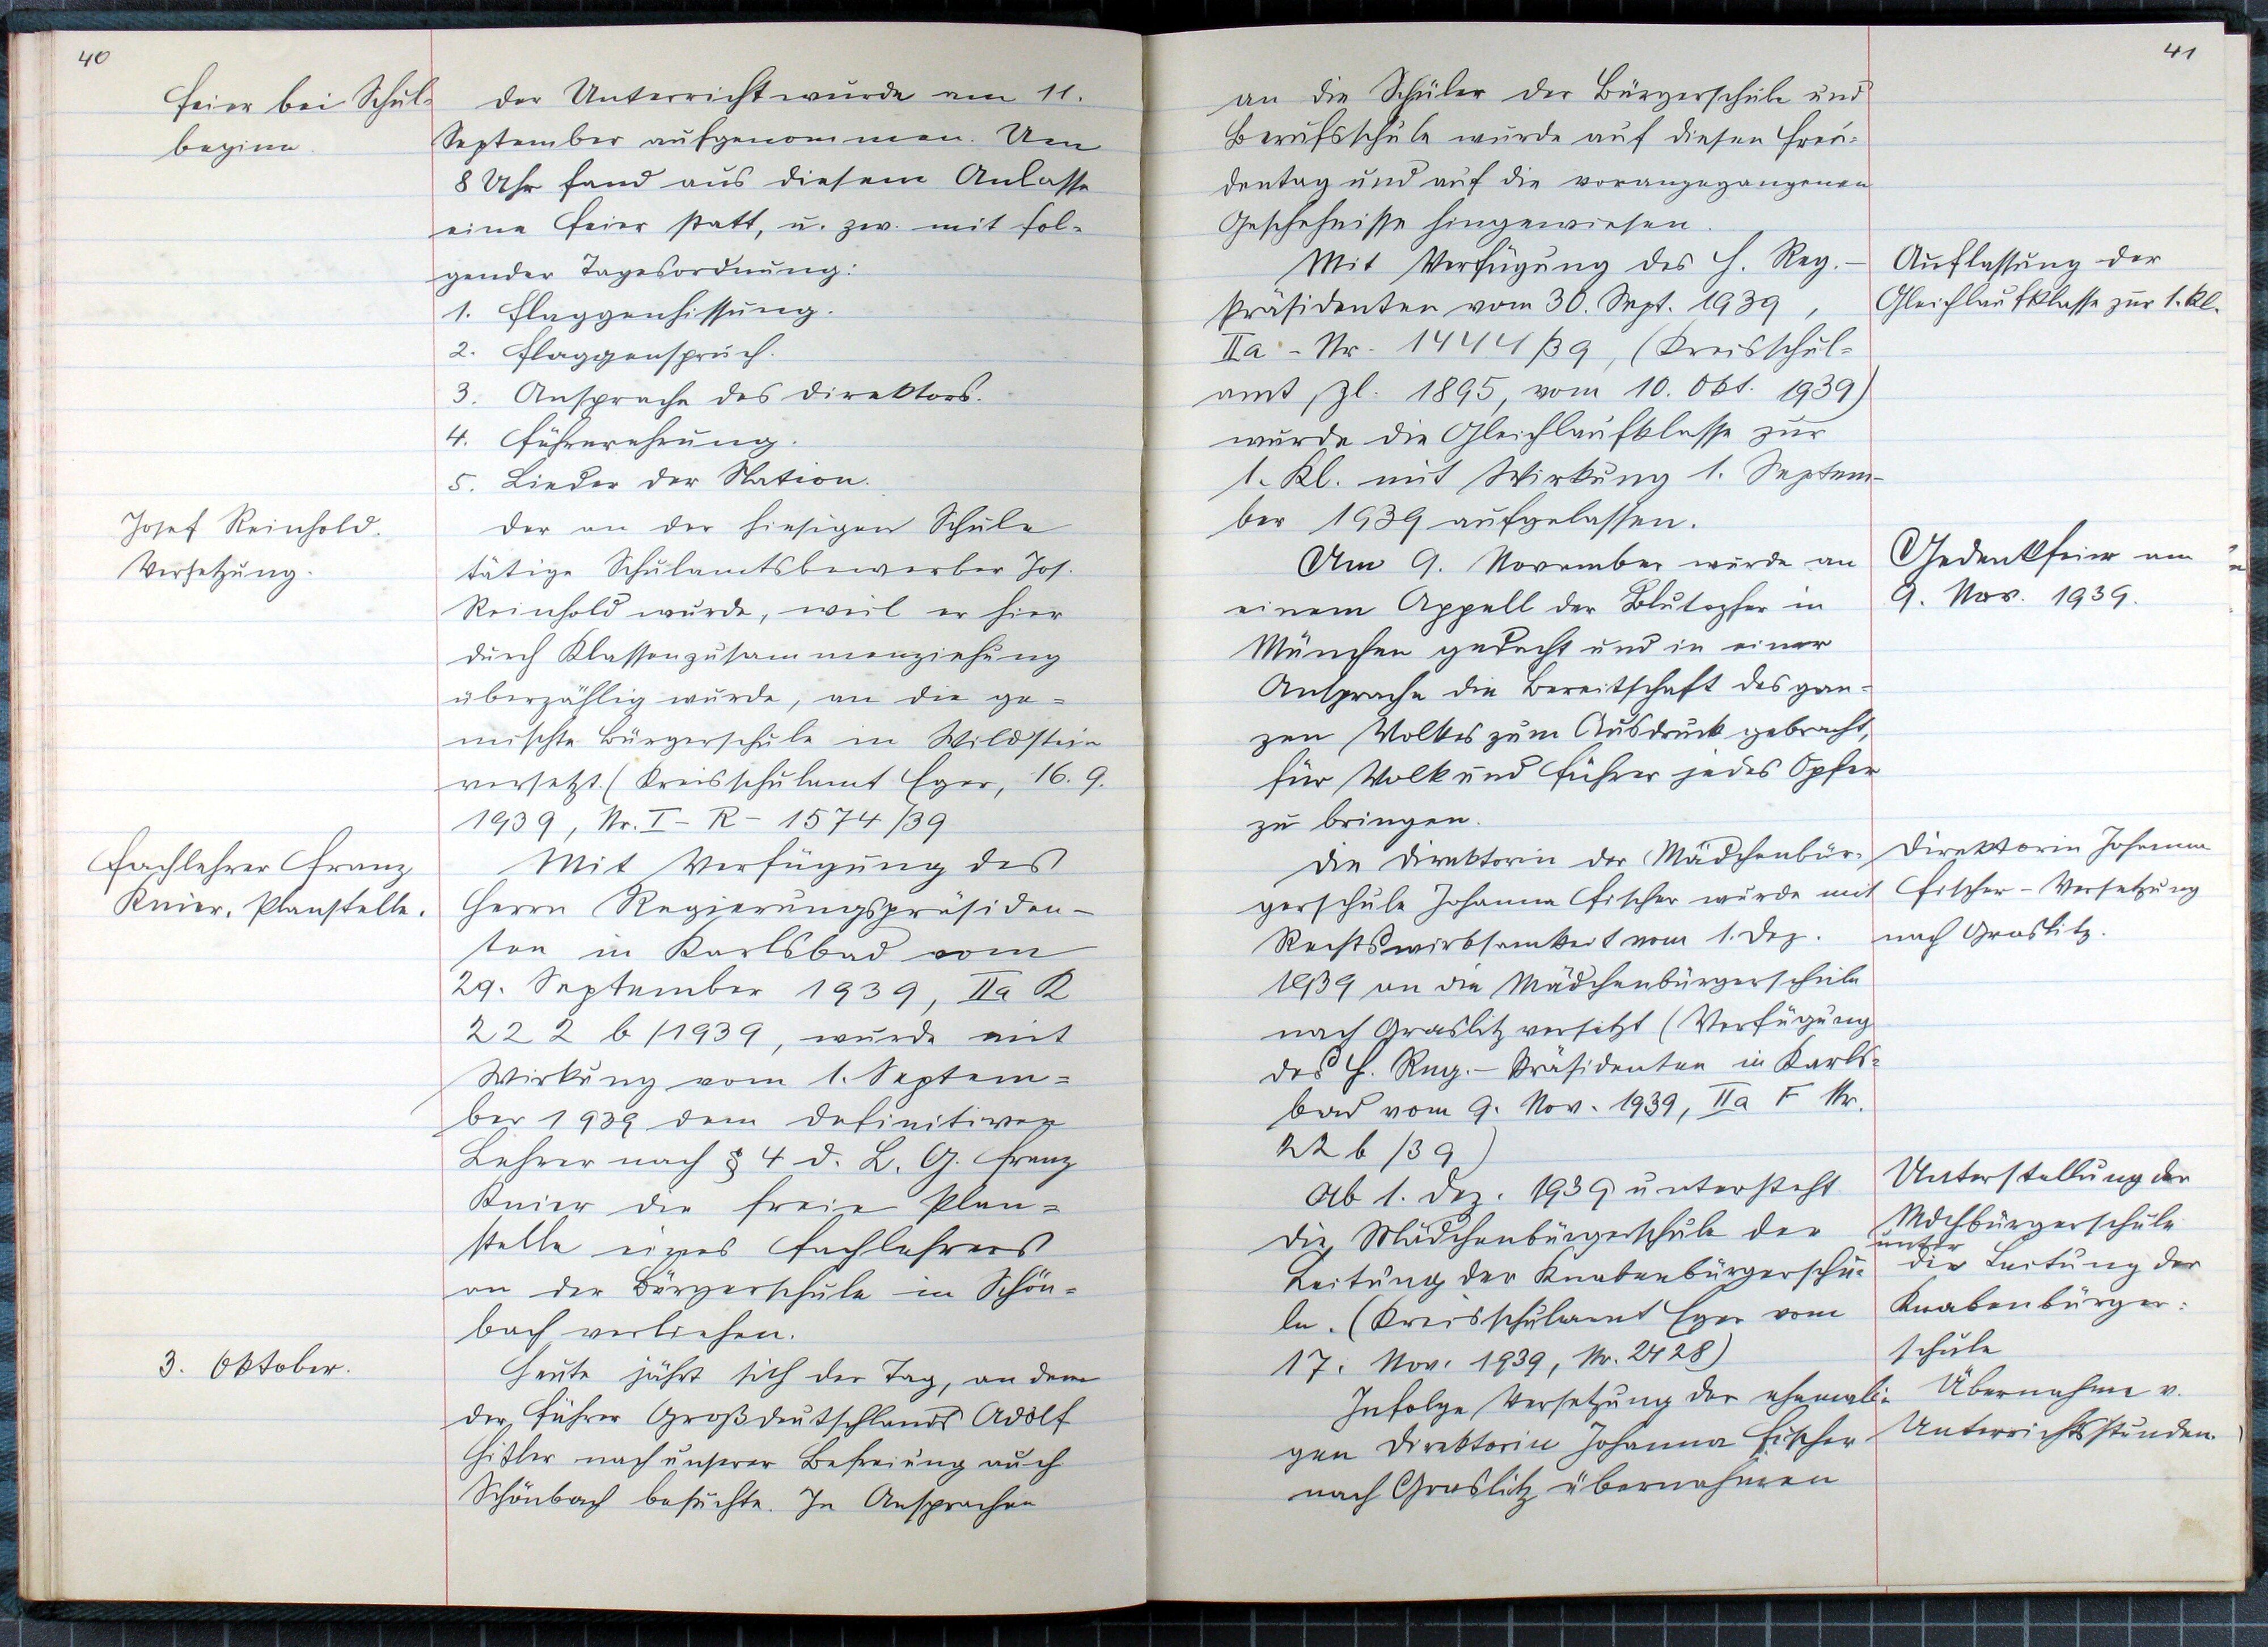 40
Feier bei Schul-
beginn.
Der Unterricht wurde am 11.
September aufgenommen. Um
8 Uhr fand aus diesem Anlasse
eine Feier statt, u. zw. mit fol-
gender Tagesordnung:
1. Flaggenhissung.
2. Flaggenspruch.
3. Ansprache des Direktors.
4. Führerehrung.
5. Lieder der Nation.
Josef Reinhold.
Versetzung.
Der an der hiesigen Schule
tätige Schulamtsbewerber Jos.
Reinhold wurde, weil er hier
durch Klassenzusammenziehung
überzählig wurde, an die ge-
mischte Bürgerschule in Wildstein
versetzt. (Kreisschulamt Eger, 16. 9.
1939, Nr. I - R - 1574/39
Fachlehrer Franz
Knier, Planstelle.
Mit Verfügung des
Herrn Regierungspräsiden-
ten in Karlsbad vom
29. September 1939, IIa K
222 b/1939, wurde mit
Wirkung vom 1. Septem-
ber 1939 dem definitiven
Lehrer nach § 4 d. L. G. Franz
Knier die freie Plan-
stelle eines Fachlehrers
an der Bürgerschule in Schön-
bach verliehen.
3. Oktober.
Heute jährt sich der Tag, an dem
der Führer Großdeutschlands Adolf
Hitler nach unserer Befreiung auch
Schönbach besuchte. In Ansprachen
41
an die Schüler der Bürgerschule und
Berufsschule wurde auf diesen Freu-
dentag und auf die vorangegangenen
Geschehnisse hingewiesen.
Auflassung der
Gleichlaufklasse zur 1. Kl.
Mit Verfügung des H. Reg.-
Präsidenten vom 30. Sept. 1939,
IIa - Nr. 1444/39, (Kreisschul-
amt, Zl. 1895, vom 10. Okt. 1939)
wurde die Gleichlaufklasse zur
1. Kl. mit Wirkung 1. Septem-
ber 1939 aufgelassen.
Gedenkfeier am
9. Nov. 1939.
Am 9. November wurde an
einem Appell der Blutopfer in
München gedacht und in einer
Ansprache die Bereitschaft des gan-
zen Volkes zum Ausdruck gebracht,
für Volk und Führer jedes Opfer
zu bringen.
Direktorin Johanna
Fischer - Versetzung
nach Graslitz.
Die Direktorin der Mädchenbür-
gerschule Johanna Fischer wurde mit
Rechtswirksamkeit vom 1. Dez.
1939 an die Mädchenbürgerschule
nach Graslitz versetzt (Verfügung
des H. Reg.-Präsidenten in Karls-
bad vom 9. Nov. 1939, IIa F Nr.
22 b/39)
Unterstellung der
Mdchbürgerschule
unter
die Leitung der
Knabenbürger-
schule
Ab 1. Dez. 1939 untersteht
die Mädchenbürgerschule der
Leitung der Knabenbürgerschu-
le. (Kreisschulamt Eger vom
17. Nov. 1939, Nr. 2428)
Übernahme v.
Unterrichtsstunden.
Infolge Versetzung der ehemali-
gen Direktorin Johanna Fischer
nach Graslitz übernahmen